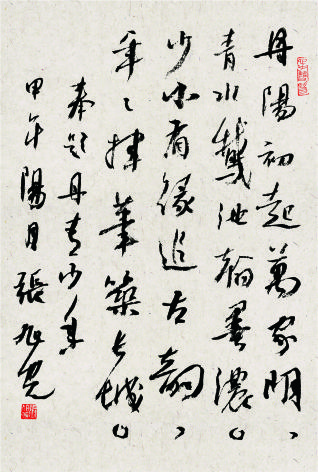 丹陽初起萬家明，
青水鵝池翰墨濃。
少小有緣追古韵，
年々揮筆築長城。
奉題丹青少年
甲午陽月張旭光